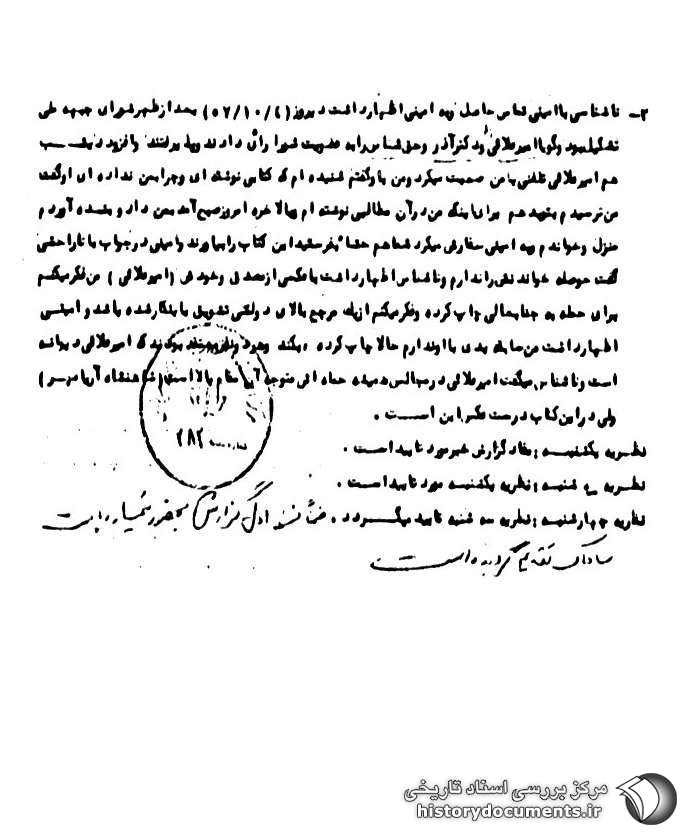 ۲- ناشناسی با امینی تماس حاصل و به امینی اظهار داشت دیروز (۵۷/۱۰/۴) بعد از ظهر شورای جبهه ملی
تشکیل بود و گویا امیرعلائی و دکتر آذر و حق شناس را به عضویت شورا رأی دادند ولی برلتند و افزود دیشب
هم امیرعلائی تلفنی با من صحبت میکرد و من با و گفتم شنیده ام که کتابی نوشته ای و چرا بمن نداده ای او گفت
من ترسیدم بتو بدهم برای اینکه من در آن مطالبی نوشته ام و بالاخره امروز صبح آمد بمن داد و بنده آوردم
منزل و خواندم و به امینی سفارش میکرد شما هم حتماً بفرستید این کتاب را بیاورند و امینی در جواب با ناراحتی
گفت حوصله خواندنش را ندارم و ناشناس اظهار داشت با عکسی از مصدق و خودش (امیرعلائی) من فکر میکنم
برای حمله به جنابعالی چاپ کرده و فکر میکنم از یک مرجع بالای دولتی تشویق باینکار شده باشد و امینی
اظهار داشت من سابقه بدی با او ندارم حالا چاپ کرده ، بکند که امیرعلائی دیوانه
است و ناشناس میگفت امیرعلائی در مجالس همیشه حملاتی متوجه آن مقام بالا است (شاهنشاه آریامهر)
ولی در این کتاب درست عکس این است .
نظریه یکشنبه : مفاد گزارش خبر مورد تایید است .
نظریه سه شنبه : نظریه یکشنبه مورد تایید است .
نظریه چهارشنبه : نظریه سه شنبه تایید میگردد . ضمناً گزارش بحضور تیمسار ریاست
ساواک تقدیم گردیده است .
۲۸۲
مرکز بررسی اسناد تاریخی
historydocuments.ir